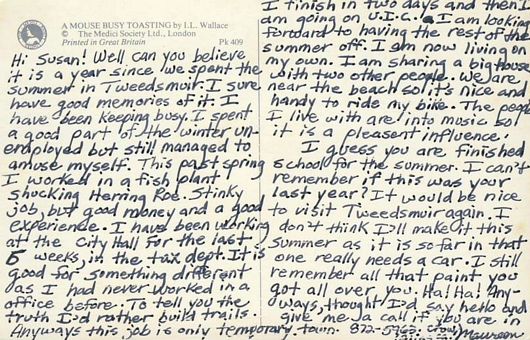 A MOUSE BUSY TOASTING by I.L. Wallace
© The Medici Society Ltd., London
Printed in Great Britain Pk 409
Hi Susan! Well can you believe
it is a year since we spent the
summer in Tweedsmuir. I sure
have good memories of it. I
have been keeping busy. I spent
a good part of the winter un-
employed but still managed to
amuse myself. This past spring
I worked in a fish plant
shucking Herring Roe. Stinky
job, but good money and a good
experience. I have been working
at the City Hall for the last
5 weeks, in the tax dept. It is
good for something different
as I had never worked in a
office before. To tell you the
truth I'd rather build trails.
Anyways this job is only temporary.
I finish in two days and then I
am going on U.I.C. I am looking
forward to having the rest of the
summer off. I am now living on
my own. I am sharing a big house
with two other people. We are
near the beach so it's nice and
handy to ride my bike. The people
I live with are into music so
it is a pleasent influence.
I guess you are finished
school for the summer. I can't
remember if this was your
last year? It would be nice
to visit Tweedsmuir again. I
don't think I'll make it this
summer as it is so far in that
one really needs a car. I still
remember all that paint you
got all over you. Ha! Ha! Any-
ways, thought I'd say hello and
give me a call if you are in
town. Maureen